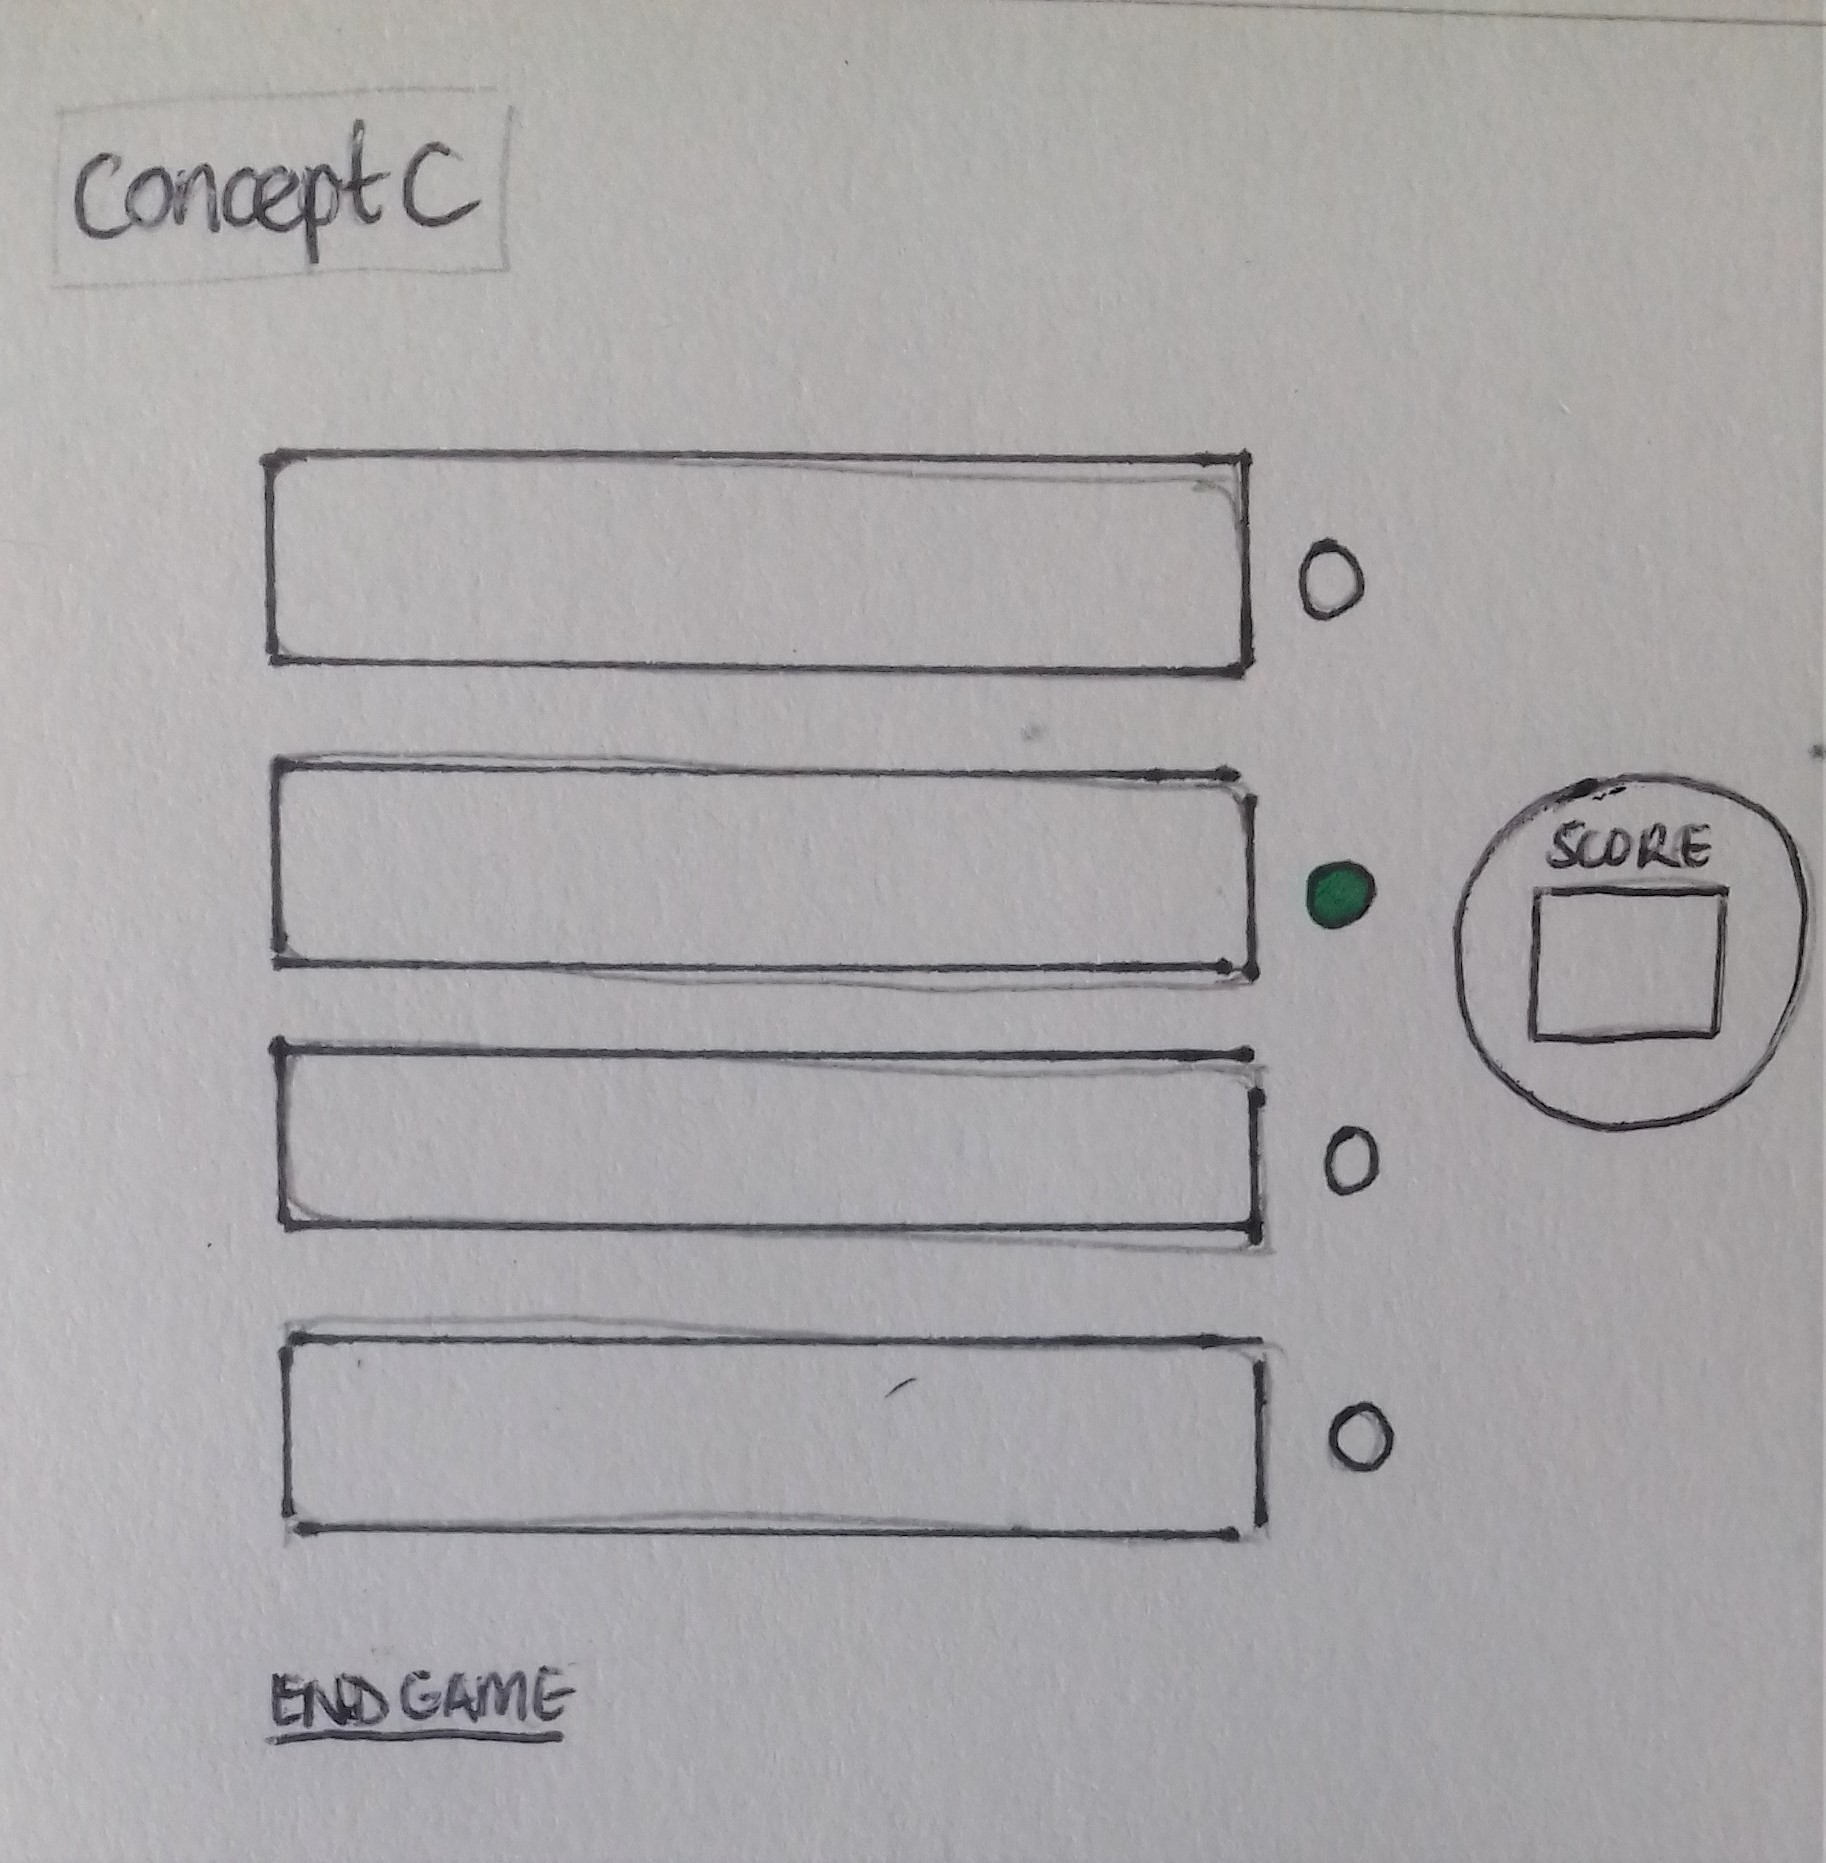 Concept C
SCORE
END GAME